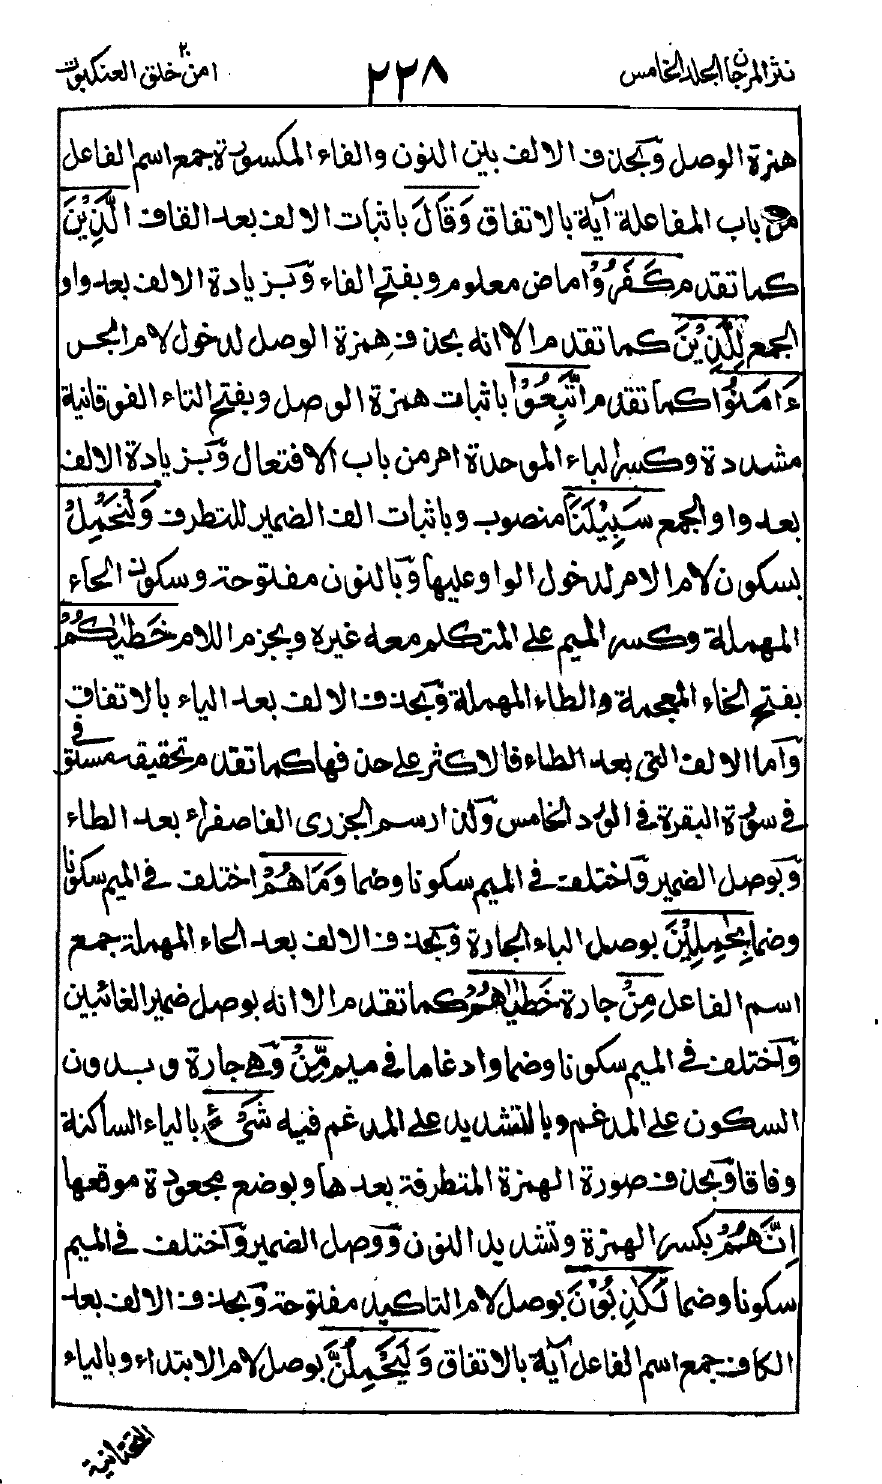 نثر المرجان الجلد الخامس
٢٢٨
امن خلق ٢٠ العنكبوت
همزة الوصل وبحذف الالف بين النون والفاء المكسورة جمع اسم الفاعل
من باب المفاعلة آية بالاتفاق وَقَالَ باثبات الالف بعد القاف الَّذِيْنَ
كما تقدم كَفَرُوْا ماض معلوم وبفتح الفاء وبزيادة الالف بعد واو
الجمع لِلَّذِيْنَ كما تقدم الا انه بحذف همزة الوصل لدخول لام الجر
ءَامَنُوْا كما تقدم اتَّبِعُوْا باثبات همزة الوصل وبفتح التاء الفوقانية
مشددة وكسر الباء الموحدة امر من باب الافتعال وبزيادة الالف
بعد واو الجمع سَبِيْلَنَا منصوب وباثبات الف الضمير للتطرف وَلْنَحْمِلْ
بسكون لام الامر لدخول الواو عليها وبالنون مفتوحة وسكون الحاء
المهملة وكسر الميم على المتكلم معه غيره وبجزم اللام خَطٰيٰكُمْ
بفتح الخاء المعجمة والطاء المهملة وبحذف الالف بعد الياء بالاتفاق
واما الالف التي بعد الطاء فالاكثر على حذفها كما تقدم تحقيقه مستوفى
في سورة البقرة في الورد الخامس ولذا رسم الجزرى الفا صفراء بعد الطاء
وبوصل الضمير واختلف في الميم سكونا وضما وَمَا هُمْ اختلف في الميم سكونا
وضما بِحٰمِلِيْنَ بوصل الباء الجارة وبحذف الالف بعد الحاء المهملة جمع
اسم الفاعل مِنْ جارة خَطٰيٰهُمْ كما تقدم الا انه بوصل ضمير الغائبين
واختلف في الميم سكونا وضما وادغاما في ميم مِّنْ وهي جارة وبدون
السكون على المدغم وبالتشديد على المدغم فيه شَيْءٍ بالياء الساكنة
وفاقا وبحذف صورة الهمزة المتطرفة بعدها وبوضع مجعودة موقعها
اِنَّهُمْ بكسر الهمزة وتشديد النون ووصل الضمير واختلف في الميم
سكونا وضما لَكٰذِبُوْنَ بوصل لام التاكيد مفتوحة وبحذف الالف بعد
الكاف جمع اسم الفاعل آية بالاتفاق وَلَيَحْمِلُنَّ بوصل لام الابتداء وبالياء
التحتانية